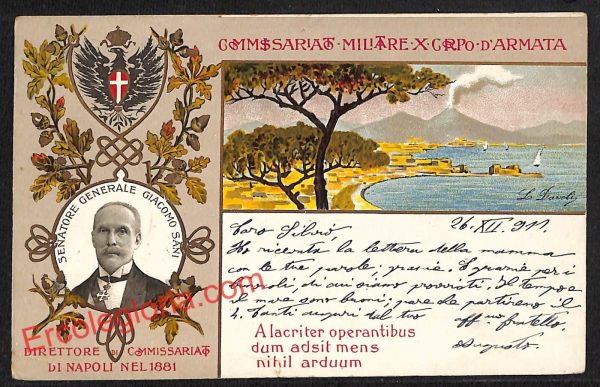 COMMISSARIATO · MILITARE · X · CORPO · D'ARMATA
SENATORE GENERALE GIACOMO SANI
DIRETTORE DI COMMISSARIATO
DI NAPOLI NEL 1881
26. XII. 911.
Caro Silvio
Ho ricevuto la lettera della mamma
con le tre parole, grazie. E grazie per i
di cui siamo provvisti. Il tempo e
il mare sono buoni; pare che partiremo il
4. Tanti auguri dal tuo
aff.mo fratello
Augusto.
A lacriter operantibus
dum adsit mens
nihil arduum
Ercolegloria.com